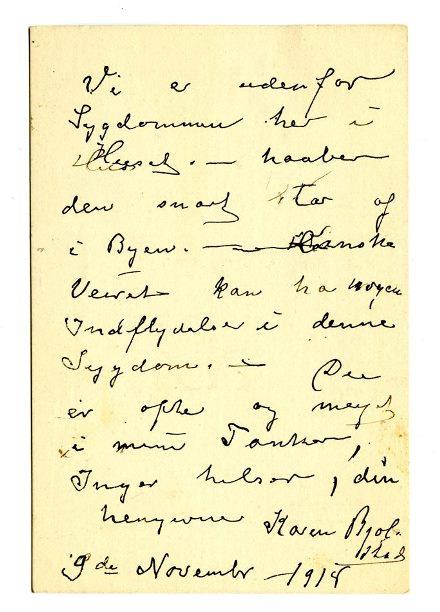 Vi er udenfor
Sygdommen her i
Huset. — haaber
den snart tar af
i Byen. — Kanske
Veiret kan ha nogen
Indflydelse i denne
Sygdom. — Du
er ofte og meget
i mine Tanker,
Inger hilser, din
hengivne Karen Bjøl-
stad
9de Novembr — 1918